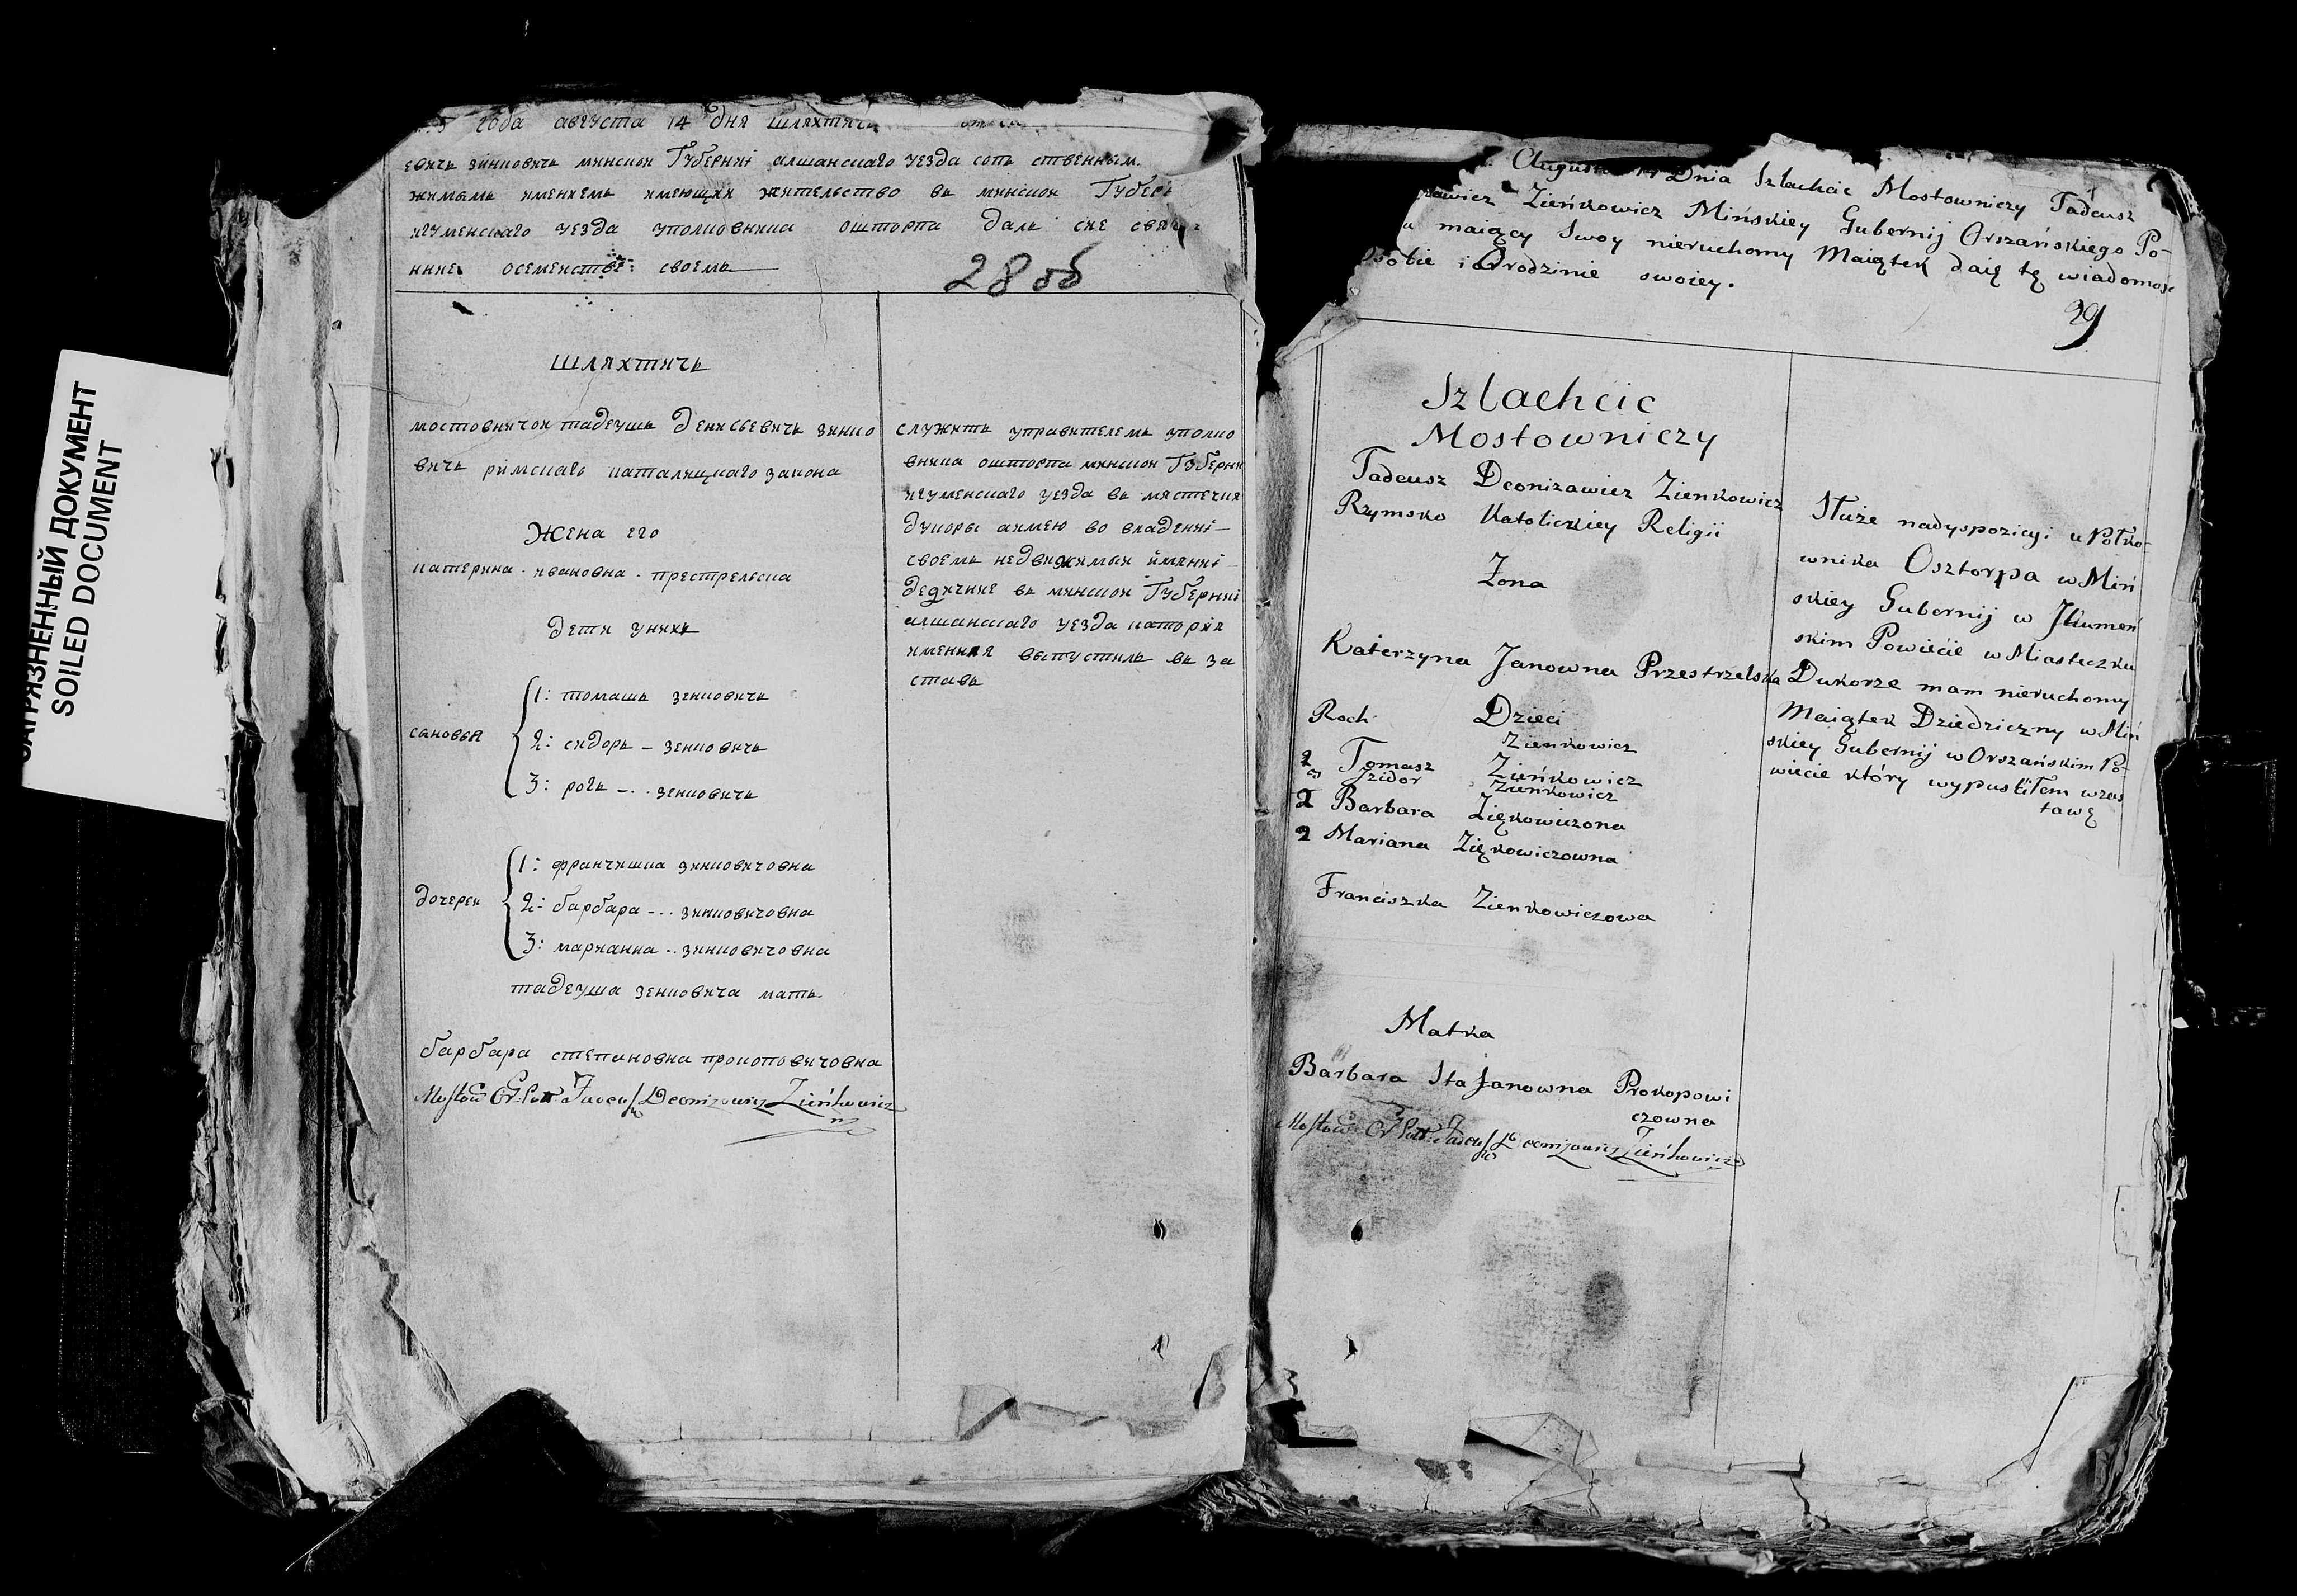 ЗАГРЯЗНЕННЫЙ ДОКУМЕНТ
SOILED DOCUMENT
5 года августа 14 дня шляхтичь
евичь зинковичь минскои Губерниі алшанскаго уезда сопственным
жимымь имениемь имеющии жительство вь минскои Губер
игуменскаго уезда уполковника ошторпа даль сие
ние осеменстве своемь
28 об
шляхтичь
мостовничои тадеушь денисьевичь зинко
вичь римскаго каталицкаго закона
Жена его
катерина ивановна престрельска
дети уних
сановья
1: томашь зенковичь
2: сидорь – зенковичь
3: рохь – зенковичь
дочереи
1: франчишка зинковичовна
2: барбара – зинковичовна
3: марианна зинковичовна
тадеуша зенковича мать
барбара степановна прокоповичовна
Tadeusz Deonizowicz Zieńkowicz
служить управителемь уполко
вника оштопта минскои Губерни
игуменскаго уезда вь мястечки
дукоры аимею во владениі
своемь недвижимыи имяниі
дедичние вь минскои Губерниі
алшанскаго уезда катория
имения выпустиль вь за
ставь
Augusta Dnia Szlachcic Mostowniczy Tadeusz
zawicz Zieńkowicz Mińskiey Gubernij Orszańskiego Po-
u maiący Swoy nieruchomy Maiątek daię tę wiadomość
osobie i orodzinie swoiey.
29
Szlachcic
Mostowniczy
Tadeusz Deonizawicz Zienkowicz
Rzymsko Katolickiey Religii
Zona
Katerzyna Janowna Przestrzelska
Dzieci
Roch Zienkowicz
2 Tomasz Zieńkowicz
3 Jzidor Zienkowicz
1 Barbara Ziękowiczona
2 Mariana Ziękowiczowna
Franciszka Zienkowiczowa
Matka
Barbara Stafanowna Prokopowi
czowna
Tadeusz Deonizowicz Zieńkowicz
Służe nadyspozicyi u Połko-
wnika Osztorpa w Miń
skiey Gubernij w Jhumeń
skim Powiecie w Miasteczku
Dukorze mam nieruchomy
Maiątek Dziedziczny w Miń
skiey Gubernij w Orszańskim Po-
wiecie który wypuściłem wzas
tawę